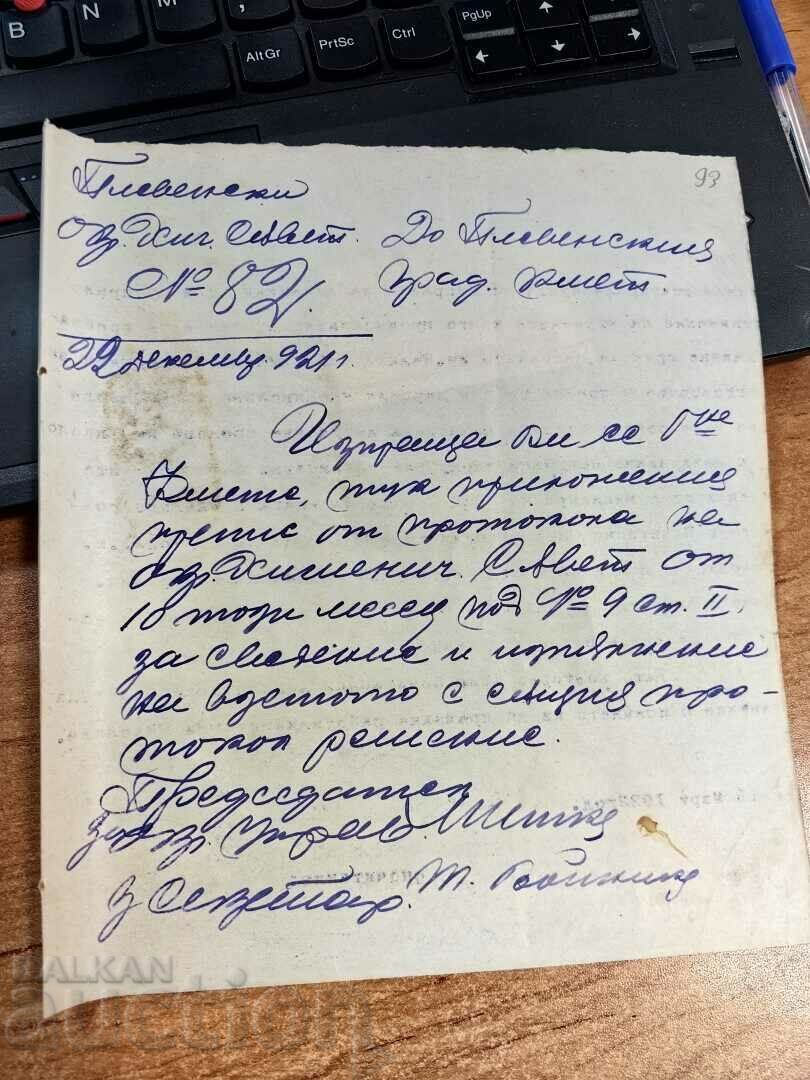 B
N
M
AltGr
PrtSc
Ctrl
PgUp
93
Плевенски
окр. Хиг. Съвет.
№ 82.
22 декемвр. 921 г.
До Плевенския
град. кмет
Изпраща Ви се Г-не
Кмете, тук приложения
препис от протокола на
окр. Хигиенич. Съвет от
18 този месец под № 9 ст. II.
за сведение и изпълнение
на взетото с същия про-
токол решение.
Председател
окр. Управ.
Секретар.
BALKAN
auction